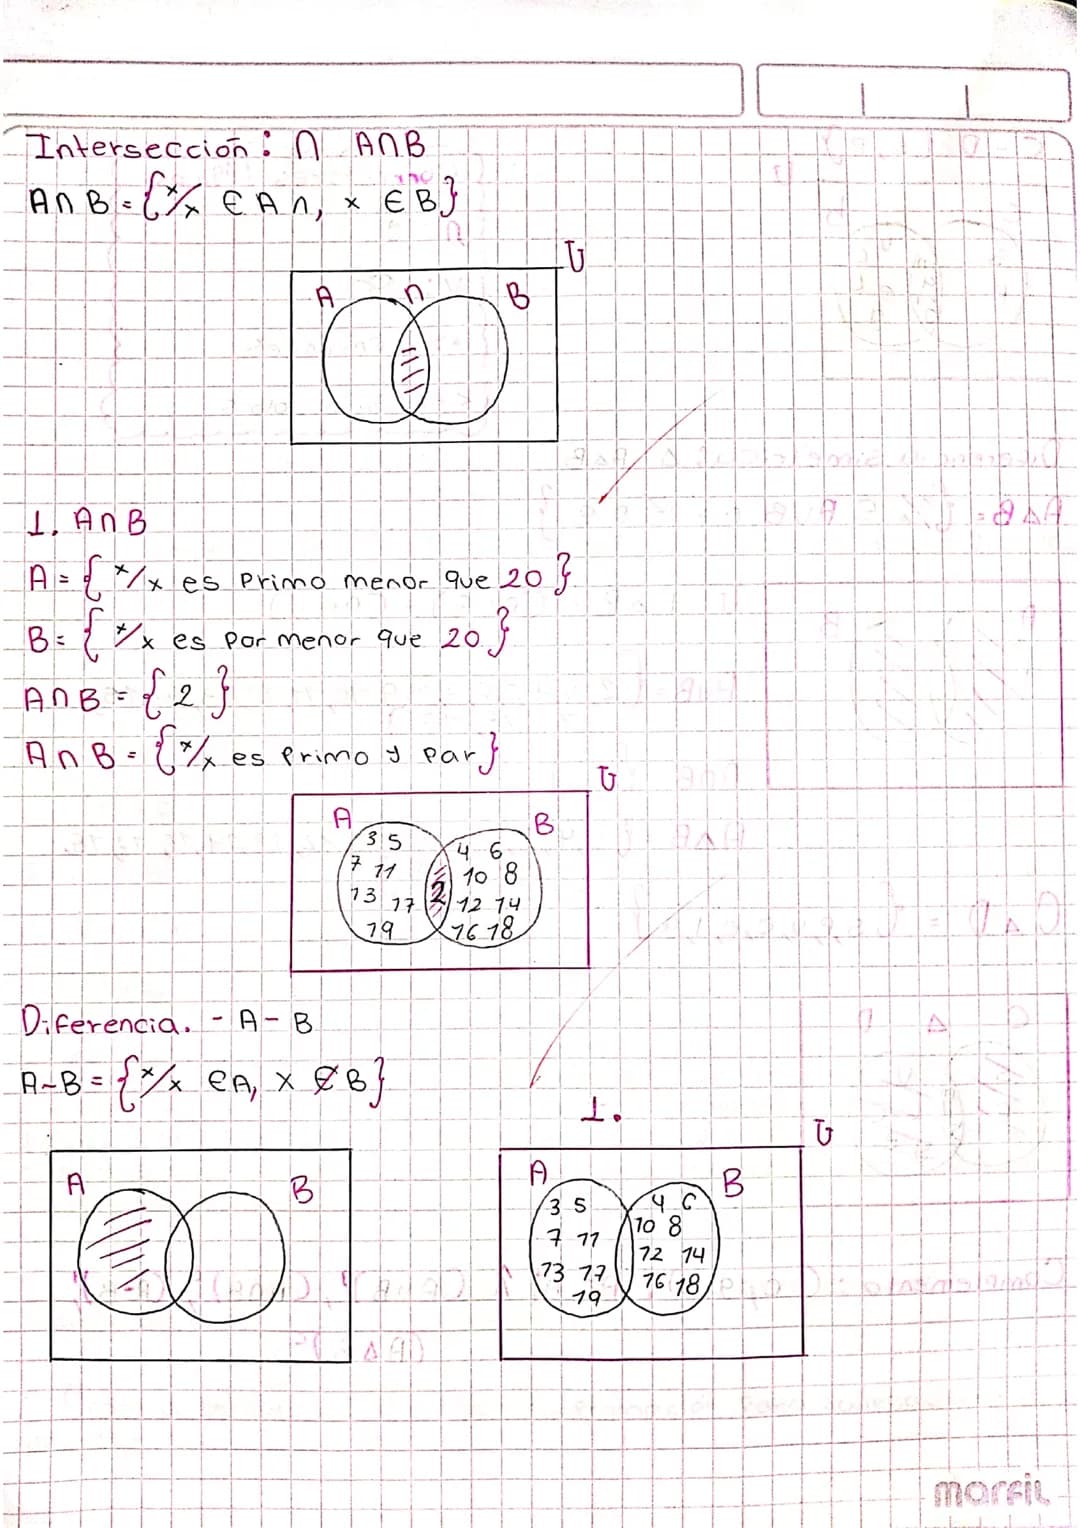 Intersección: ∩ A∩B
A∩B = {x/x ∈ A ∩, x ∈ B}
U
A ∩ B
1. A∩B
A = {x/x es Primo menor que 20}
B = {x/x es par menor que 20}
A∩B = {2}
A∩B = {x/x es Primo y par}
U
A B
3 5 4 6
7 11 10 8
13 17 2 12 14
19 16 18
Diferencia. - A - B
A~B = {x/x ∈ A, x ∉ B}
1.
U
A B
A B
3 5 4 6
7 11 10 8
12 14
13 17 16 18
19
marfil